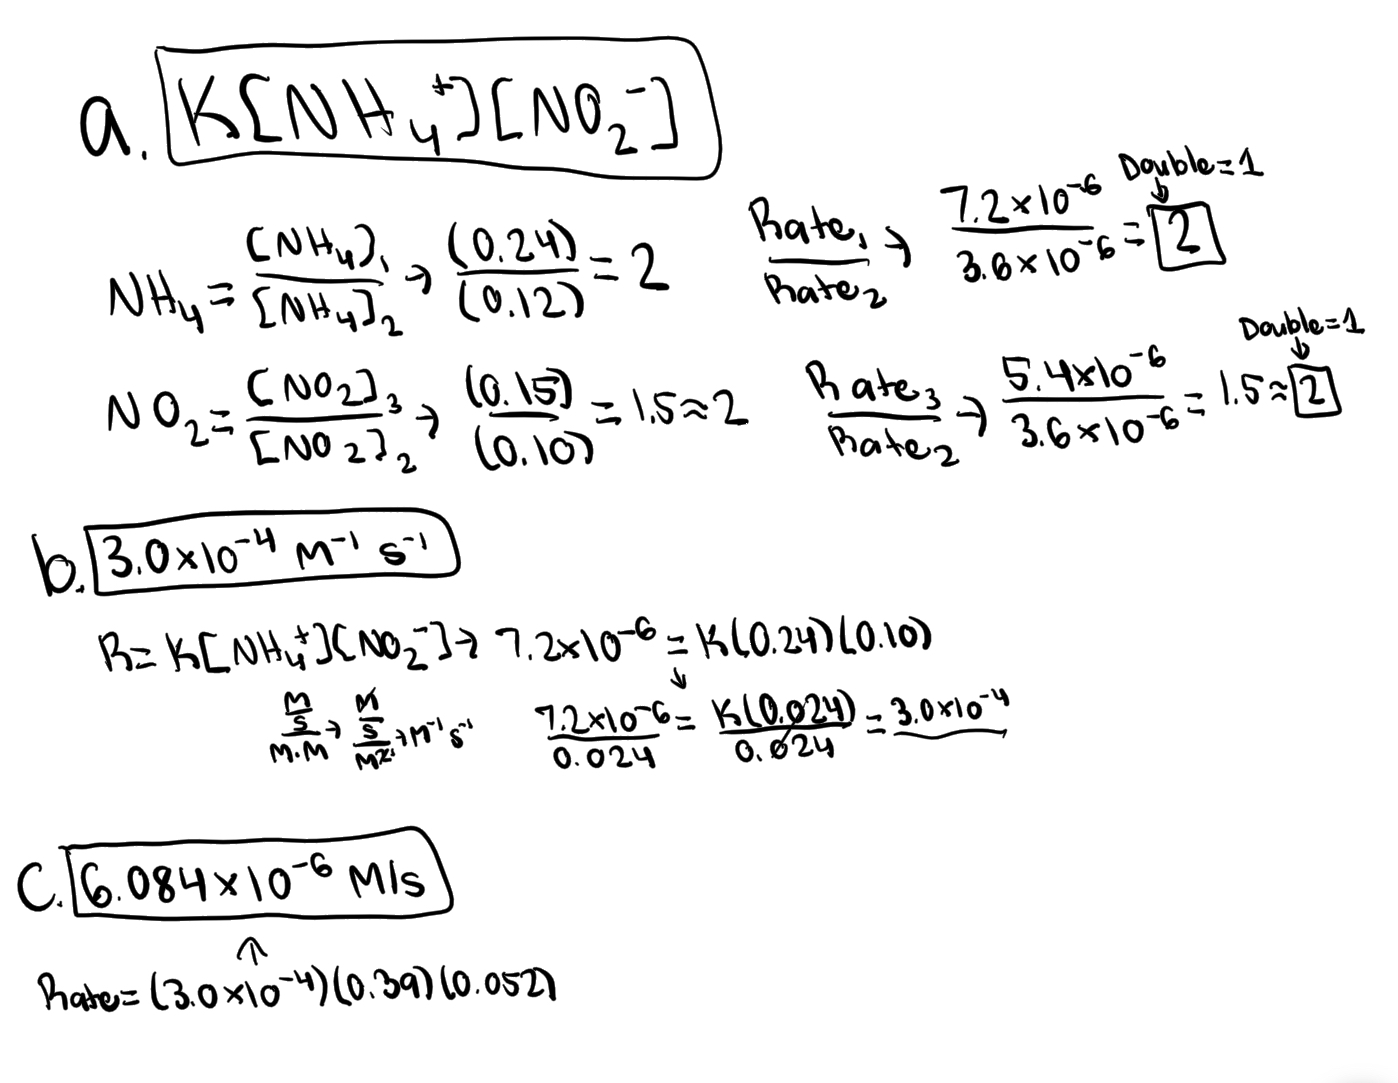 a. K[NH₄⁺][NO₂⁻]
NH₄ = [NH₄]₁ / [NH₄]₂ → (0.24) / (0.12) = 2
Rate₁ / Rate₂ → 7.2×10⁻⁶ / 3.6×10⁻⁶ = 2
Double=1
↓
NO₂ = [NO₂]₃ / [NO₂]₂ → (0.15) / (0.10) = 1.5≈2
Rate₃ / Rate₂ → 5.4×10⁻⁶ / 3.6×10⁻⁶ = 1.5≈2
Double=1
↓
b. 3.0×10⁻⁴ M⁻¹ s⁻¹
R= K[NH₄⁺][NO₂⁻] → 7.2×10⁻⁶ = K(0.24)(0.10)
↓
M/s / M·M → M/s / M² → M⁻¹ s⁻¹
7.2×10⁻⁶ / 0.024 = K(0.024) / 0.024 = 3.0×10⁻⁴
C. 6.084×10⁻⁶ M/s
↑
Rate= (3.0×10⁻⁴)(0.39)(0.052)